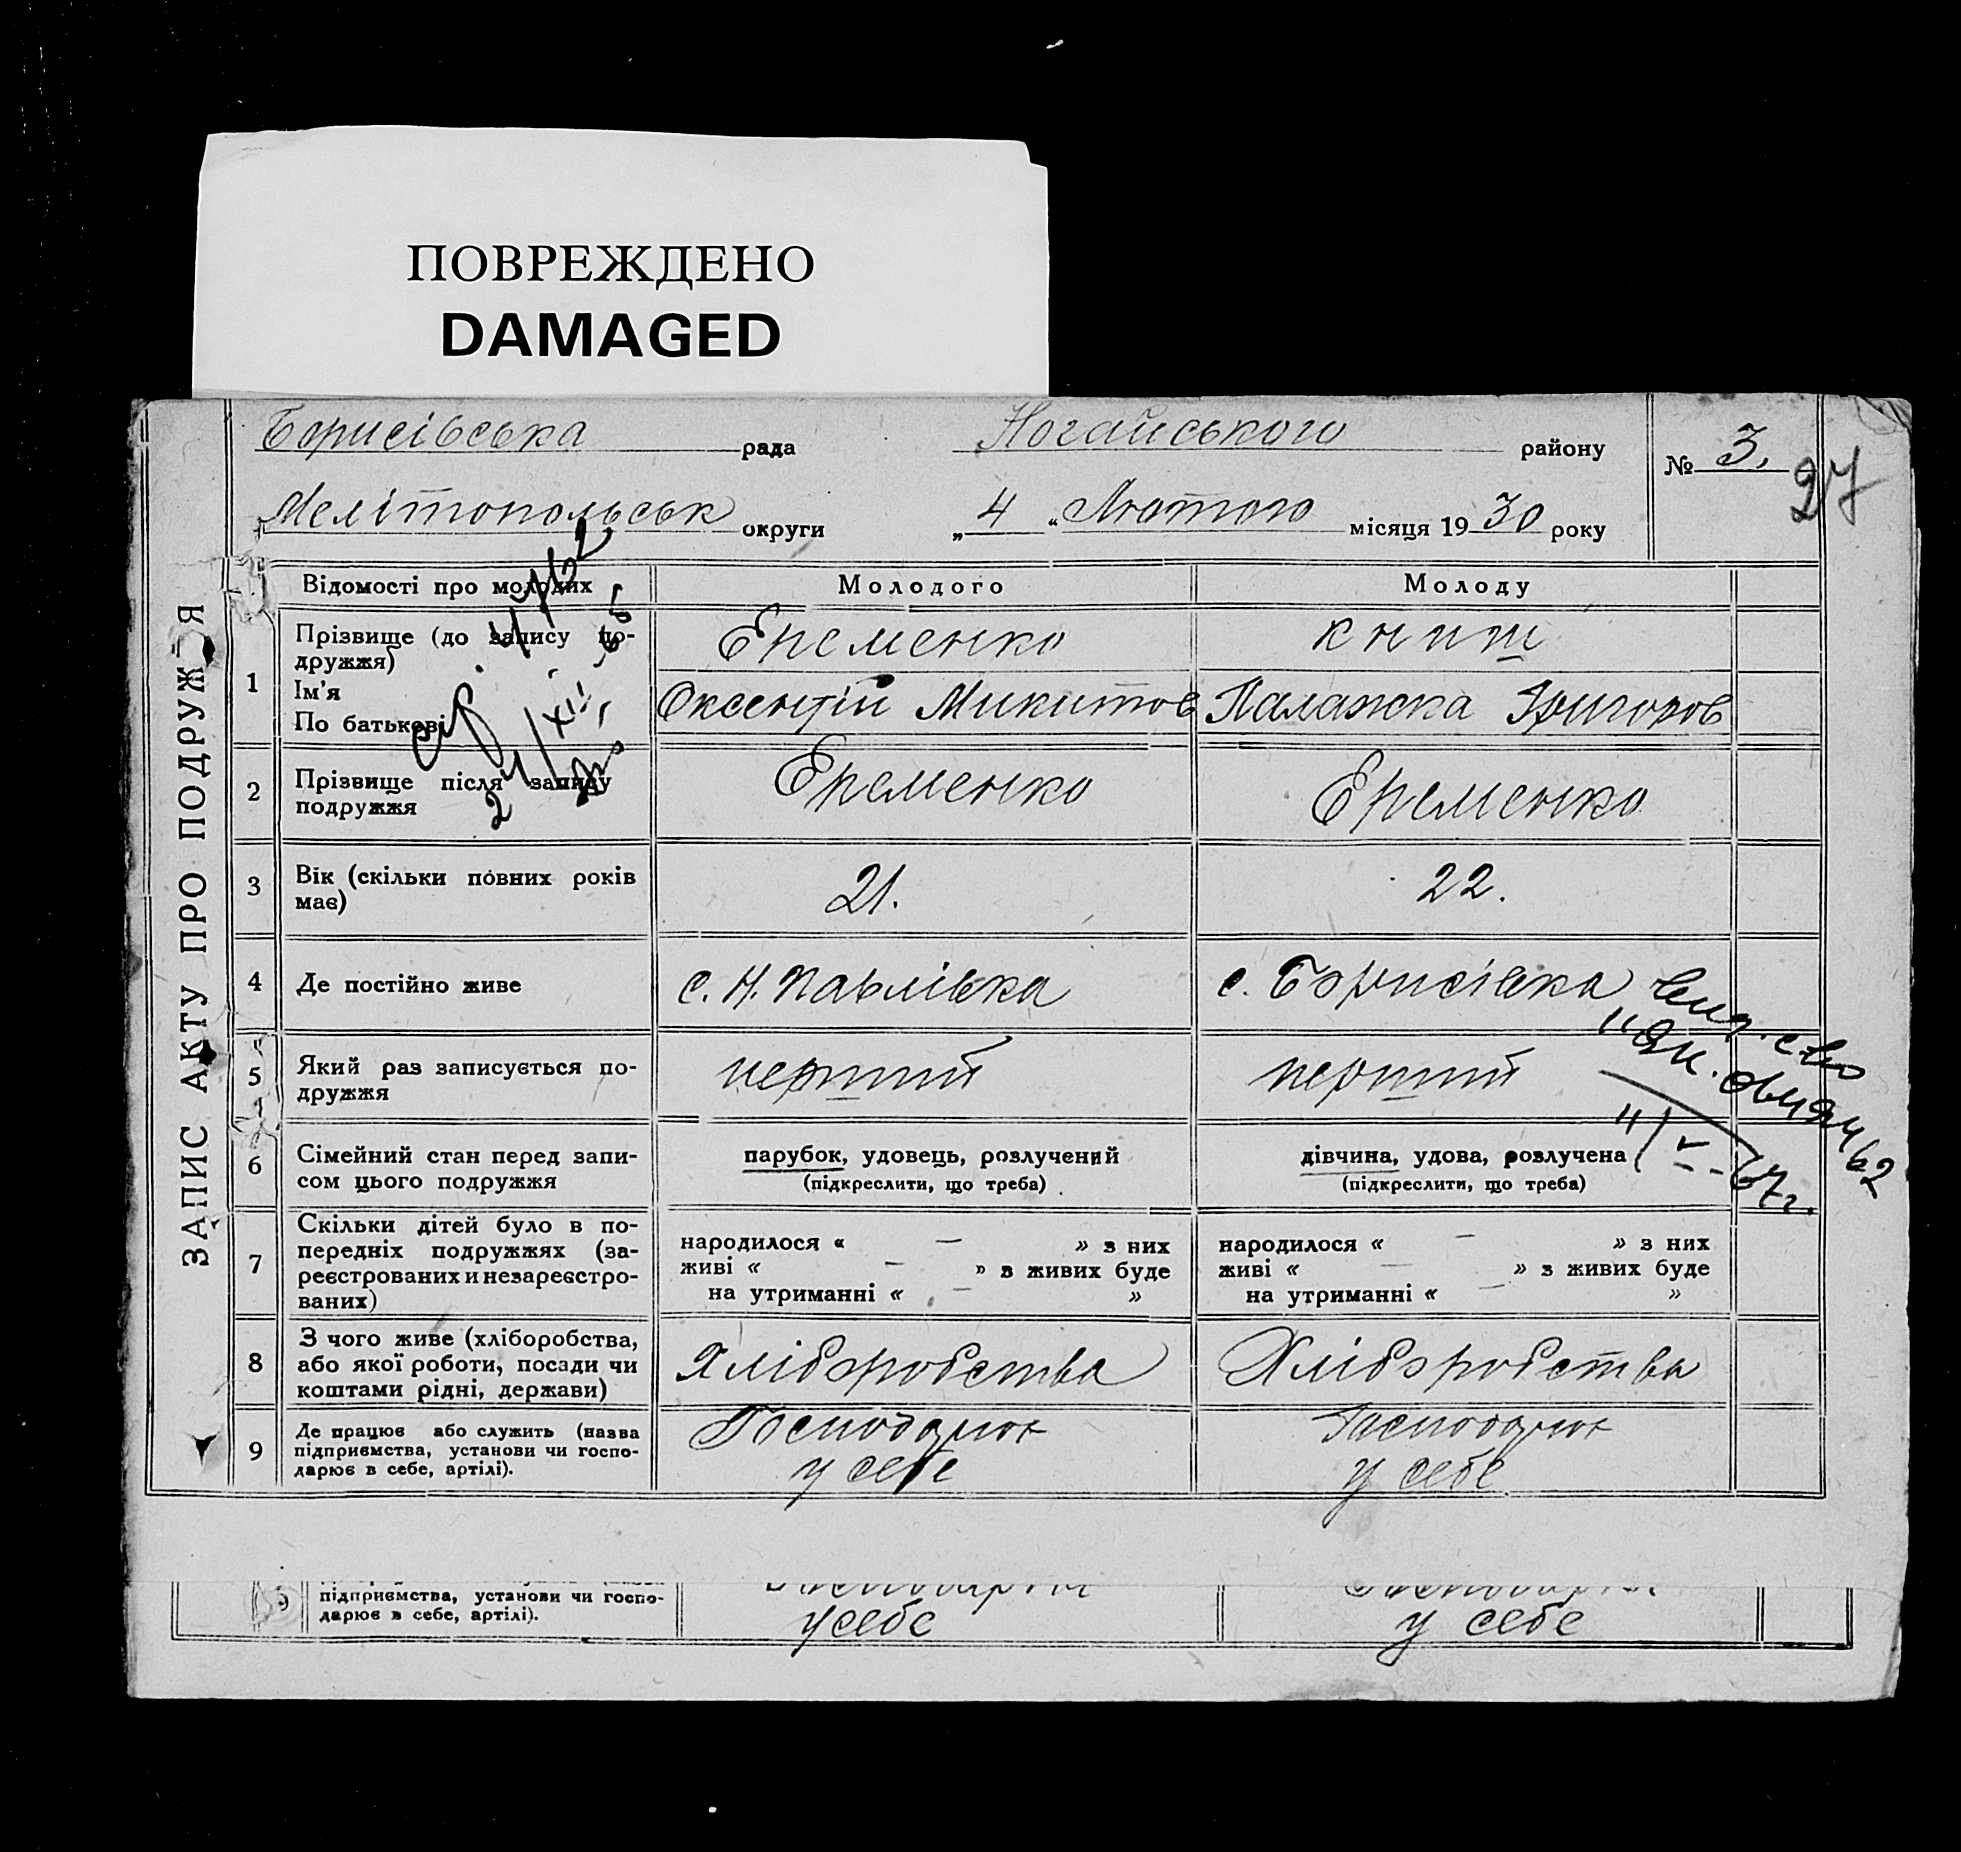 ПОВРЕЖДЕНО
DAMAGED
Борисівська рада Ногайського району № 3.
27
Мелітопольськ округи „ 4 “ Лютого місяця 19 30 року
ЗАПИС АКТУ ПРО ПОДРУЖ Я
Відомості про молодих Молодого Молоду
1 Прізвище (до запису по-
дружжя) Еременко Книш
Ім'я
По батькові Оксентій Микитов Палажка Григоров
2 Прізвище після запису
подружжя Еременко Еременко
24/XII-65
3 Вік (скільки повних років
має) 21. 22.
4 Де постійно живе с. Н. Павлівка с. Борисівка
5 Який раз записується по-
дружжя перший перший
11/V-67г.
6 Сімейний стан перед запи-
сом цього подружжя парубок, удовець, розлучений дівчина, удова, розлучена
(підкреслити, що треба) (підкреслити, що треба)
7 Скільки дітей було в по-
передніх подружжях (за-
реєстрованих и незареєстро-
ваних)
народилося « — » з них народилося « — » з них
живі « — » з живих буде живі « — » з живих буде
на утриманні « — » на утриманні « — »
8 З чого живе (хліборобства,
або якої роботи, посади чи
коштами рідні, держави) Хліборобства Хліборобства
9 Де працює або служить (назва
підприємства, установи чи госпо-
дарює в себе, артілі).
Господарює Господарює
у себе у себе
підприємства, установи чи госпо-
дарює в себе, артілі).
у себе у себе